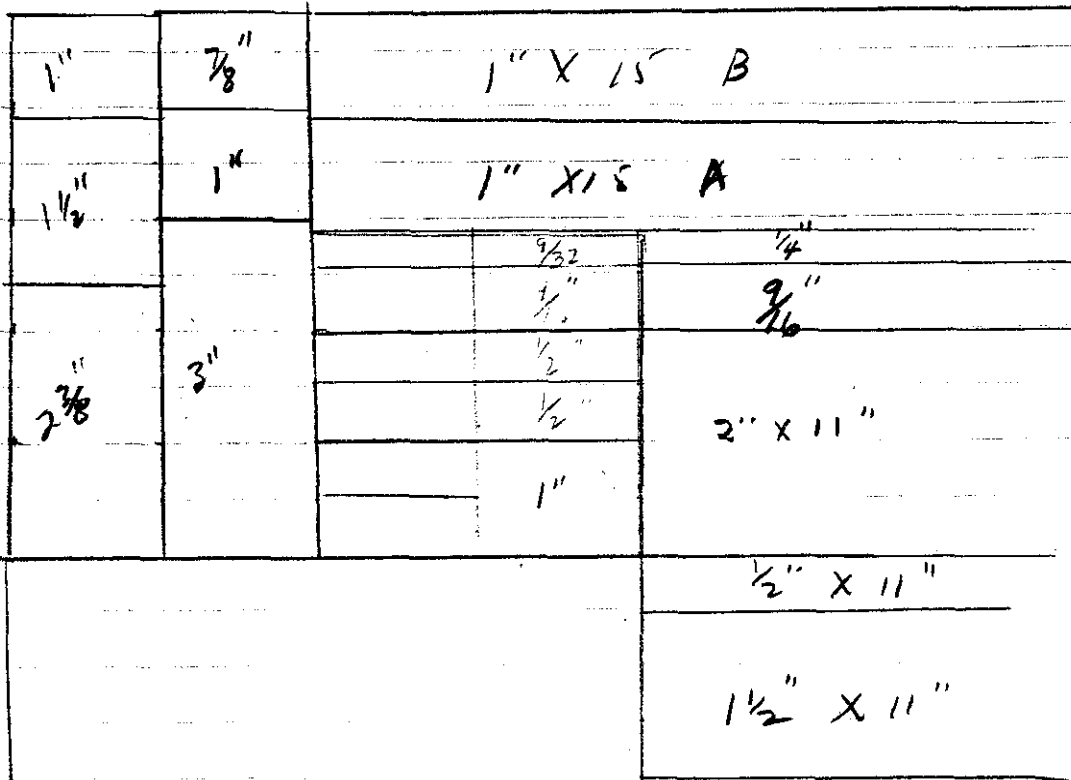 1"
7/8"
1" X 15 B
1 1/2"
1"
1" X 15 A
2 3/8"
3"
9/32
1/4"
9/16"
1/2"
1/2"
2" X 11"
1"
1/2" X 11"
1 1/2" X 11"